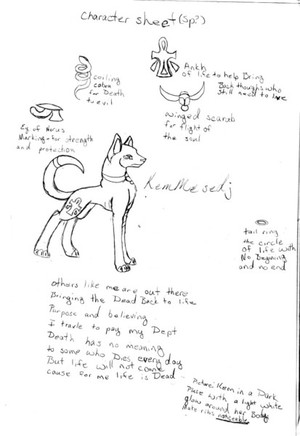 Character sheet (sp?)
coiling
cobra
for Death
to evil
Ankh
of life to help Bring
Back thoughs who
still need to live
Ey of Horus
Marking for strength
and protection
winged scarab
for flight of
the soul
KemMesedj
tail ring
the circle
of life with
No Begining
and no end
others like me are out there
Bringing the Dead Back to life
Purpose and believing
I travle to pay my Dept
Death has no meaning
to some who Dies every day
But life will not come
cause for me life is Dead
Picture: Kem in a Dark
Place with a light white
glow around her Body
Make ribs noticeable